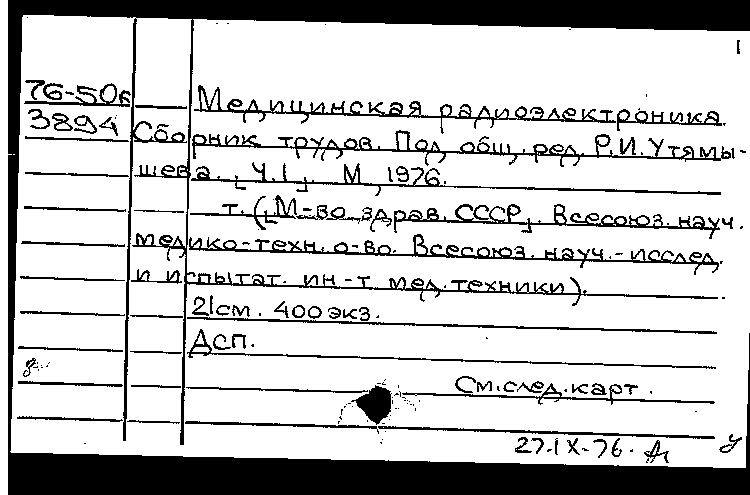 1
76-50б
3894
Медицинская радиоэлектроника.
Сборник трудов. Под общ. ред. Р.И. Утямы-
шева. [Ч.1]. М, 1976.
т. ([М-во здрав. СССР]. Всесоюз. науч.
медико-техн. о-во. Всесоюз. науч.-исслед.
и испытат. ин-т мед. техники).
21см. 400 экз.
ДСП.
См. след. карт.
27.IX-76.
у